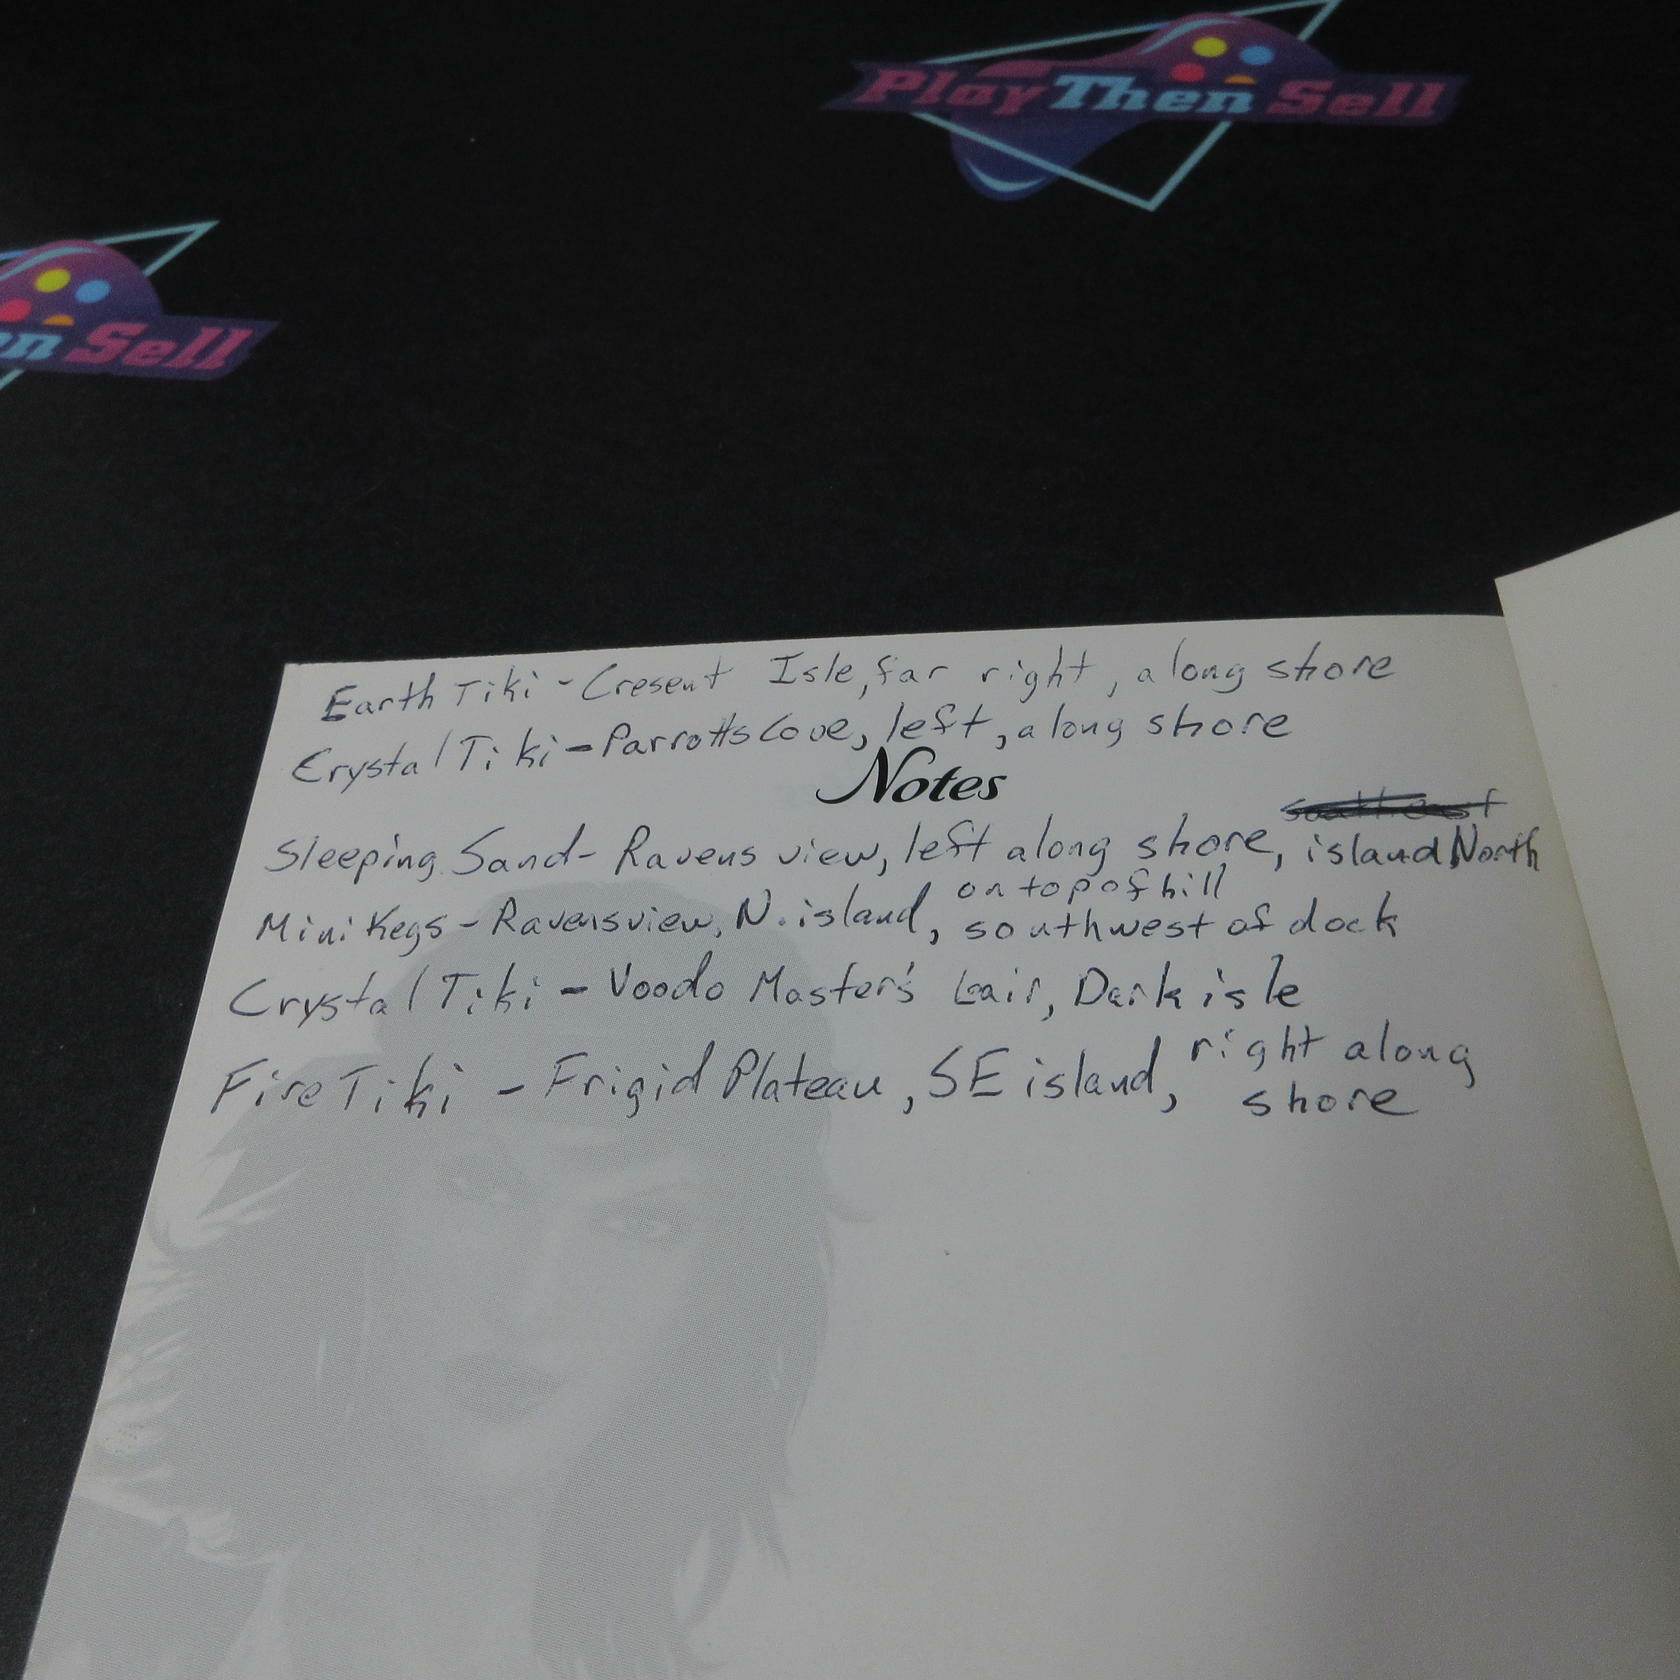 Play Then Sell
en Sell
Earth Tiki - Cresent Isle, far right, along shore
Crystal Tiki - Parrotts Cove, left, along shore
Notes
southeast
Sleeping Sand - Ravens view, left along shore, island North
on top of hill
Mini Kegs - Ravensview, N. island, southwest of dock
Crystal Tiki - Voodo Master's Lair, Dark isle
Fire Tiki - Frigid Plateau, SE island, right along
shore